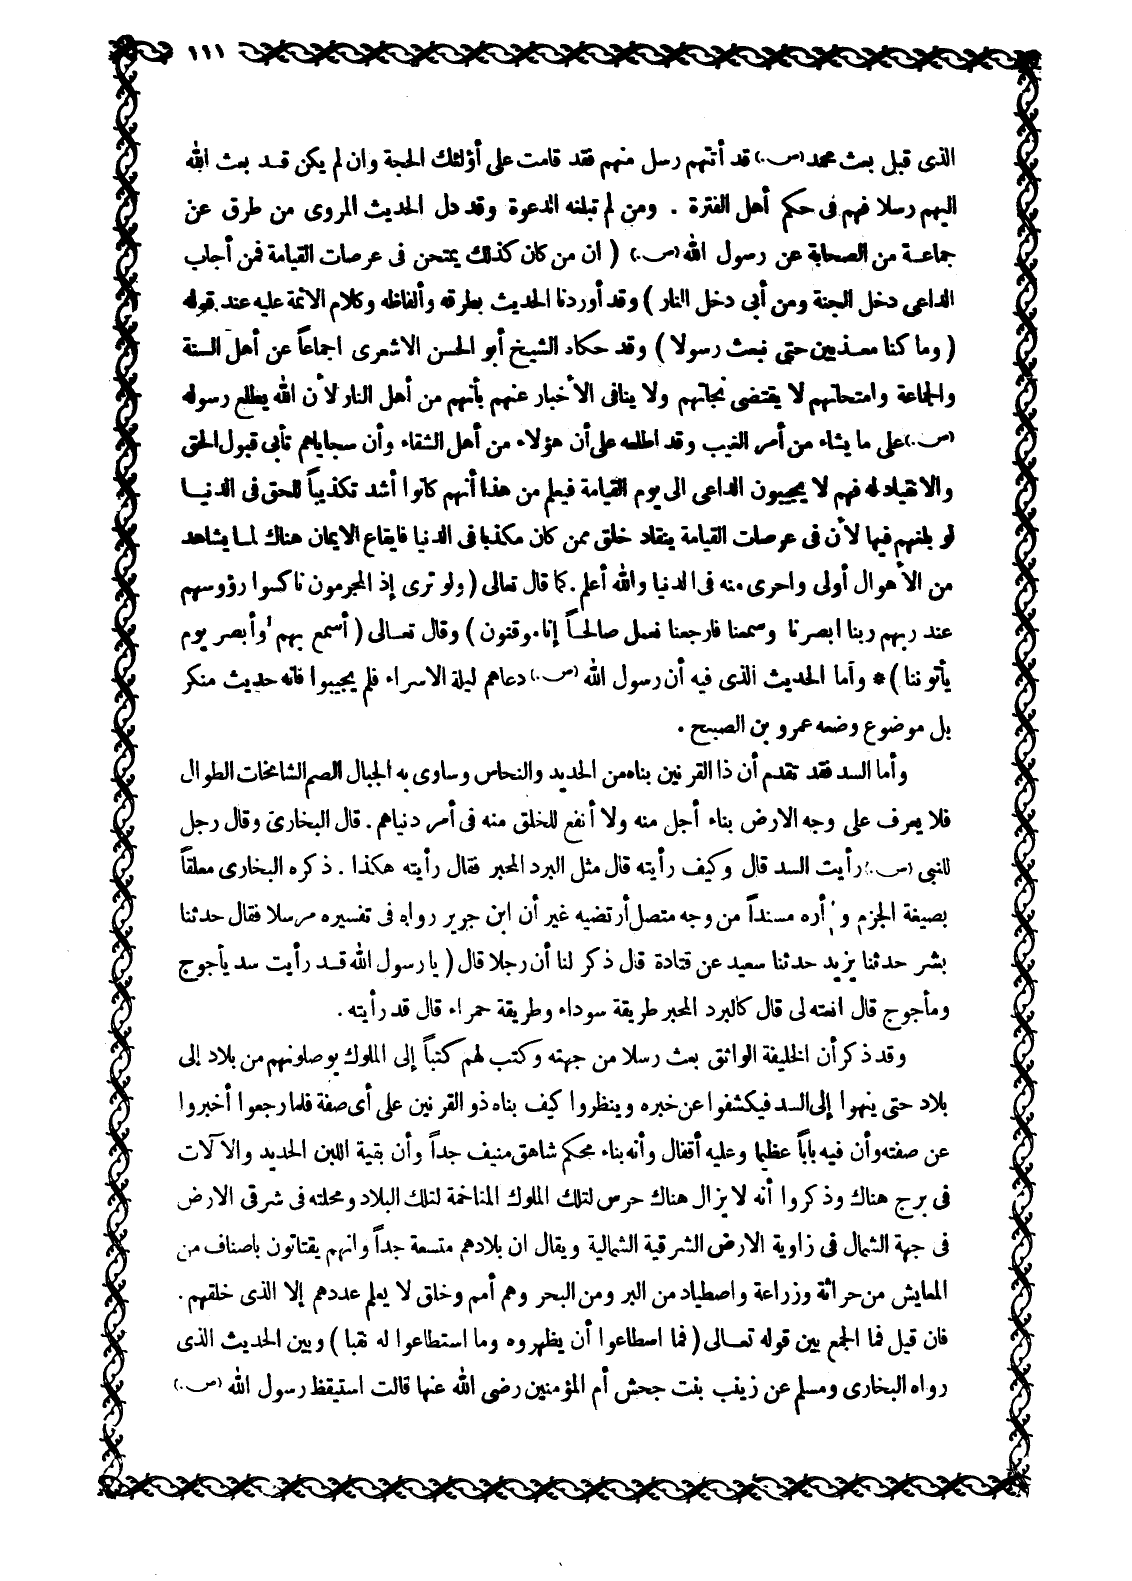 ١١١
الذى قبل بعث محمد (ص.) قد أتتهم رسل منهم فقد قامت على أؤلئك الحجة وان لم يكن قد بعث الله
اليهم رسلا فهم فى حكم أهل الفترة . ومن لم تبلغه الدعوة وقد دل الحديث المروى من طرق عن
جماعة من الصحابة عن رسول الله (ص.) ( ان من كان كذلك يمتحن فى عرصات القيامة فمن أجاب
الداعى دخل الجنة ومن أبى دخل النار ) وقد أوردنا الحديث بطرقه وألفاظه وكلام الائمة عليه عند قوله
( وما كنا معذبين حتى نبعث رسولا ) وقد حكاد الشيخ أبو الحسن الاشعرى اجماعاً عن أهل السنة
والجماعة وامتحانهم لا يقتضى نجاتهم ولا ينافى الأخبار عنهم بأنهم من أهل النار لأن الله يطلع رسوله
(ص.) على ما يشاء من أمر الغيب وقد اطلعه على أن هؤلاء من أهل الشقاء وأن سجاياهم تأبى قبول الحق
والانقياد له فهم لا يجيبون الداعى الى يوم القيامة فيعلم من هذا أنهم كانوا أشد تكذيباً للحق فى الدنيا
لو بلغهم فيها لأن فى عرصات القيامة ينقاد خلق ممن كان مكذبا فى الدنيا فايقاع الايمان هناك لما يشاهد
من الأهوال أولى واحرى منه فى الدنيا والله أعلم . كما قال تعالى ( ولو ترى إذ المجرمون ناكسوا رؤوسهم
عند ربهم ربنا ابصرنا وسمعنا فارجعنا نعمل صالحاً إنا موقنون ) وقال تعالى ( أسمع بهم وأبصر يوم
يأتوننا ) * وأما الحديث الذى فيه أن رسول الله (ص.) دعاهم ليلة الاسراء فلم يجيبوا فانه حديث منكر
بل موضوع وضعه عمرو بن الصبح .
وأما السد فقد تقدم أن ذا القرنين بناه من الحديد والنحاس وساوى به الجبال الصم الشامخات الطوال
فلا يعرف على وجه الارض بناء أجل منه ولا أنفع للخلق منه فى أمر دنياهم . قال البخارى وقال رجل
للنبى (ص.) رأيت السد قال وكيف رأيته قال مثل البرد المحبر فقال رأيته هكذا . ذكره البخارى معلقاً
بصيغة الجزم و أره مسنداً من وجه متصل أرتضيه غير أن ابن جرير رواه فى تفسيره مرسلا فقال حدثنا
بشر حدثنا يزيد حدثنا سعيد عن قتادة قال ذكر لنا أن رجلا قال ( يا رسول الله قد رأيت سد يأجوج
ومأجوج قال انعته لى قال كالبرد المحبر طريقة سوداء وطريقة حمراء قال قد رأيته .
وقد ذكر أن الخليفة الواثق بعث رسلا من جهته وكتب لهم كتباً إلى الملوك يوصلونهم من بلاد إلى
بلاد حتى ينهوا إلى السد فيكشفوا عن خبره وينظروا كيف بناه ذو القرنين على أى صفة فلما رجعوا أخبروا
عن صفته وأن فيه باباً عظيما وعليه أقفال وأنه بناء محكم شاهق منيف جداً وأن بقية اللبن الحديد والآلات
فى برج هناك وذكروا أنه لا يزال هناك حرس لتلك الملوك المتاخمة لتلك البلاد ومحلته فى شرقى الارض
فى جهة الشمال فى زاوية الارض الشرقية الشمالية ويقال ان بلادهم متسعة جداً وانهم يقتاتون باصناف من
المعايش من حراثة وزراعة واصطياد من البر ومن البحر وهم أمم وخلق لا يعلم عددهم إلا الذى خلقهم .
فان قيل فما الجمع بين قوله تعالى ( فما اسطاعوا أن يظهروه وما استطاعوا له نقبا ) وبين الحديث الذى
رواه البخارى ومسلم عن زينب بنت جحش أم المؤمنين رضى الله عنها قالت استيقظ رسول الله (ص.)